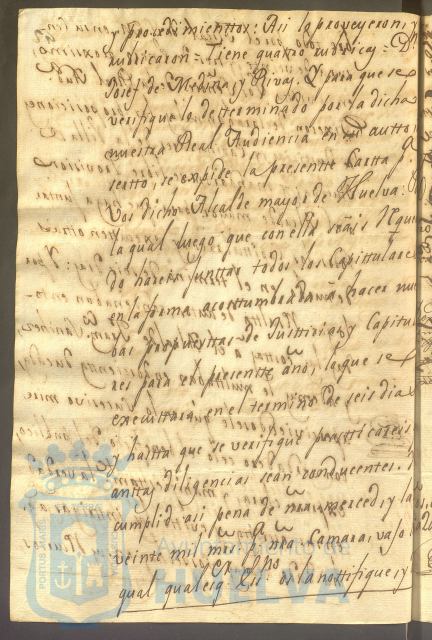 y procedimienttos: Asi lo proveyeron, y
rubricaron = Tiene quatro rubricas = Dn
Josef de Medina y Rivas. Y para que se
verifique lo determinado por la dicha
nuestra Real Audiencia en su autto
, se expide la presentte Cartta pr
Vos dicho Alcalde mayor de Huelva:
la qual luego que con ella seais Reque
do hareis juntar todos los Capittulares
en la forma acostumbrada, hacer nue
bas propuesttas de Justticias, y Capitu
res para el presentte año, lo que se
executtará en el termino de seis dias
y hastta que se verifique practticareis
anttas diligencias sean conducentes.
cumplid asi pena de nra merced, y la
veinte mil mrs pa nra Camara, vajo la
qual qualesqr Essno os la nottifique, y
Ayuntamiento de
HUELVA
PORTUS MARIS